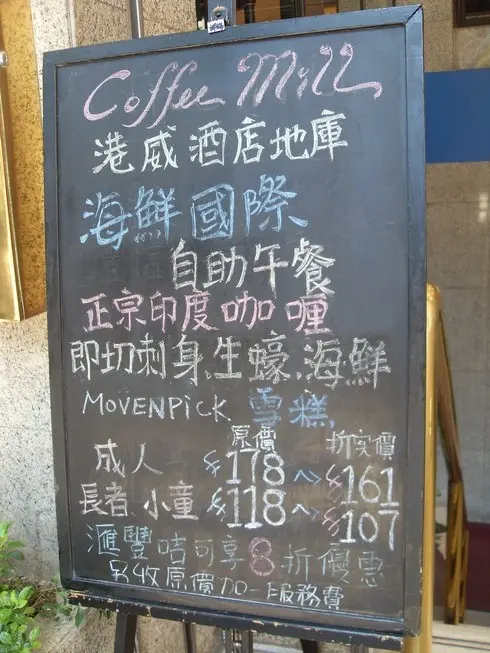 Coffee Mill
港威酒店地庫
海鮮國際
自助午餐
正宗印度咖喱
即切刺身.生蠔.海鮮
MOVENPiCK 雪糕
原價 折实價
成人 $178 ~> $161
長者.小童 $118 ~> $107
滙豐咭可享8折優惠
另收原價加一服務費